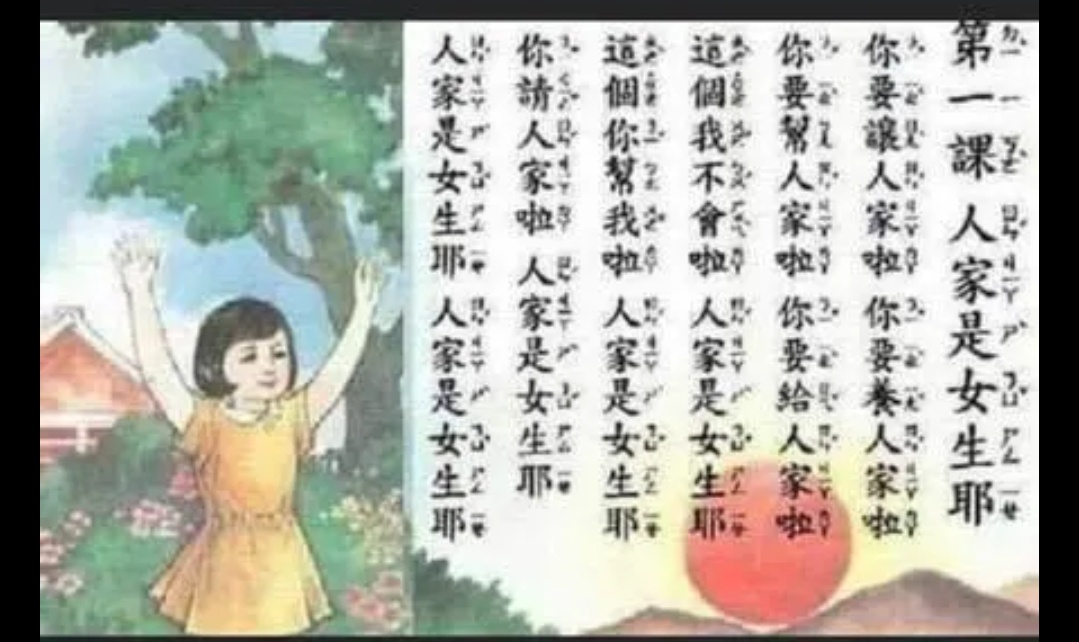 第一課 人家是女生耶
你要讓人家啦 你要養人家啦
你要幫人家啦 你要給人家啦
這個我不會啦 人家是女生耶
這個你幫我啦 人家是女生耶
你請人家啦 人家是女生耶
人家是女生耶 人家是女生耶